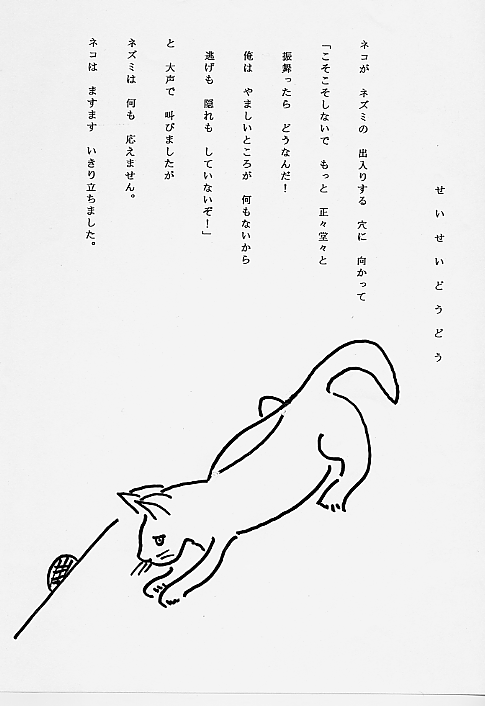 せいせいどうどう
ネコが ネズミの 出入りする 穴に 向かって
「こそこそしないで もっと 正々堂々と
振舞ったら どうなんだ！
俺は やましいところが 何もないから
逃げも 隠れも していないぞ！」
と 大声で 叫びましたが
ネズミは 何も 応えません。
ネコは ますます いきり立ちました。